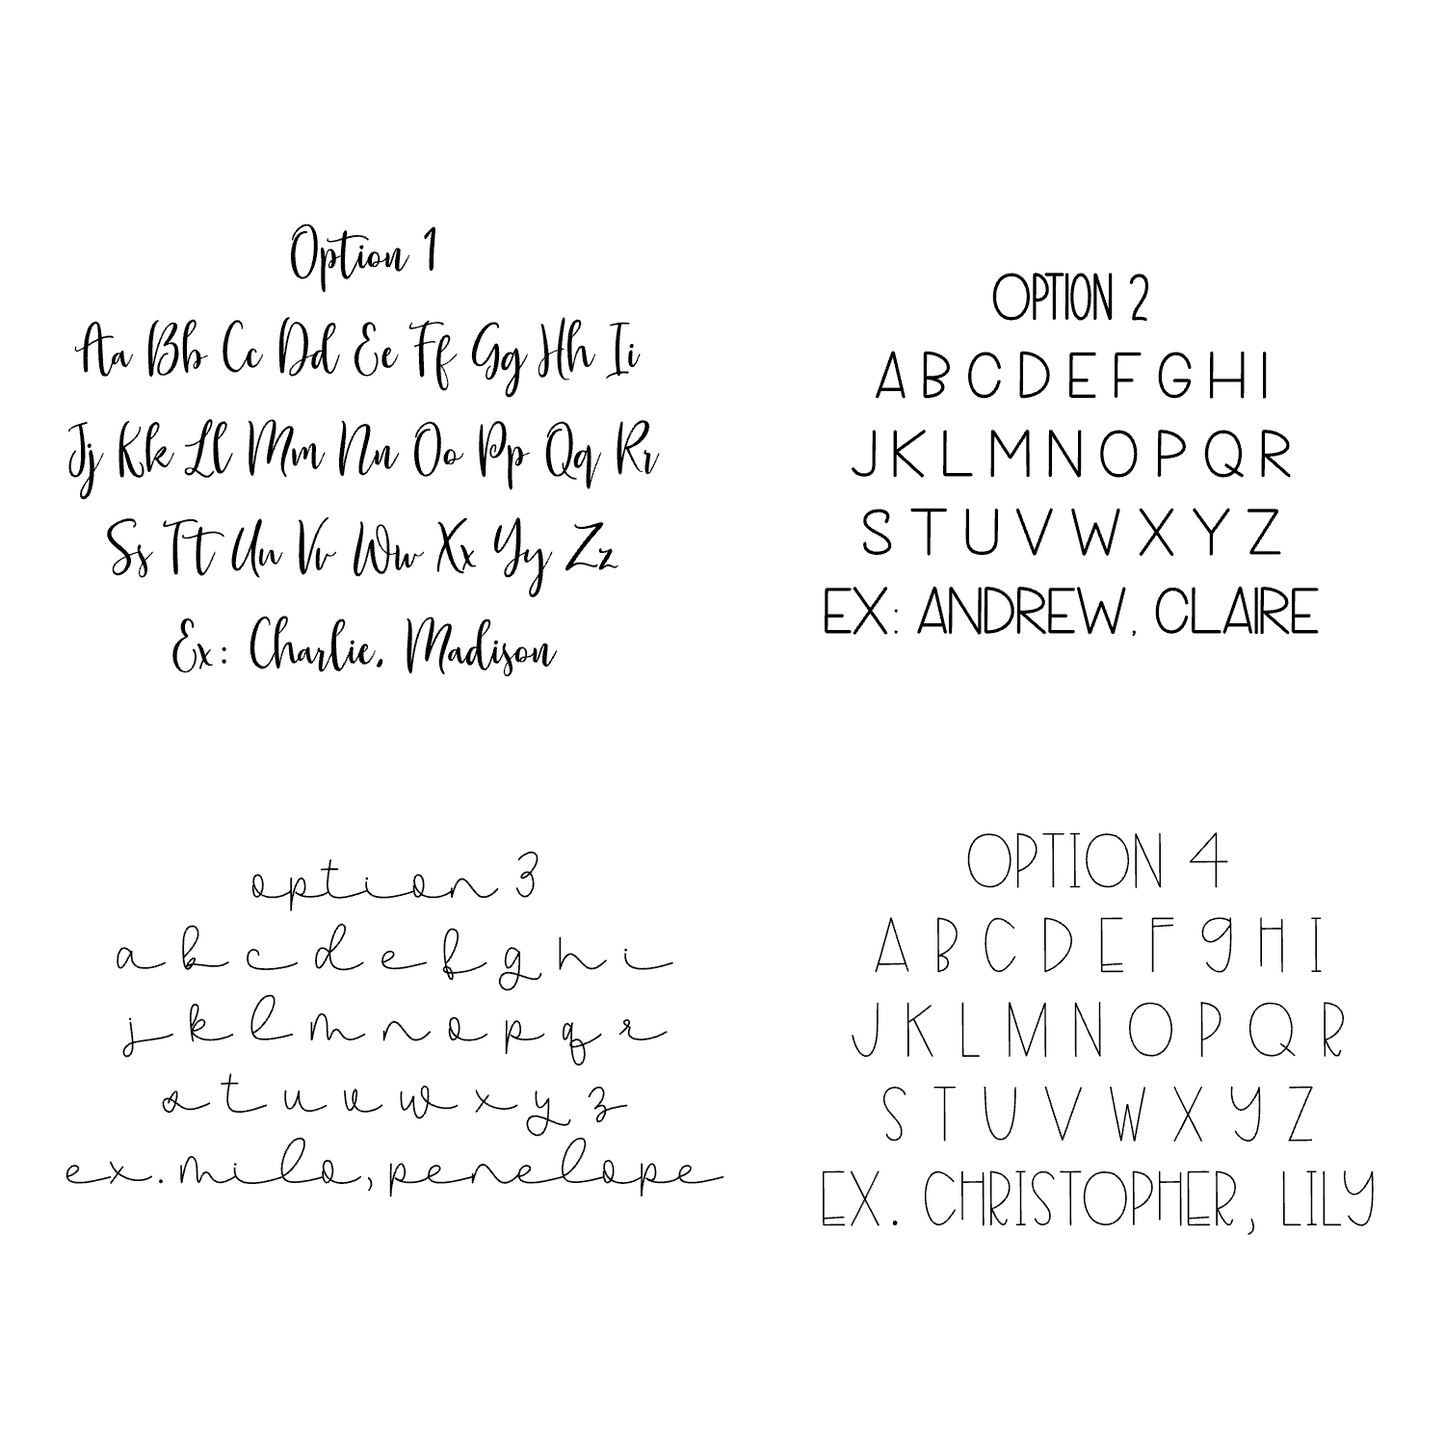 Option 1
Aa Bb Cc Dd Ee Ff Gg Hh Ii
Jj Kk Ll Mm Nn Oo Pp Qq Rr
Ss Tt Uu Vv Ww Xx Yy Zz
Ex: Charlie, Madison
OPTION 2
A B C D E F G H I
J K L M N O P Q R
S T U V W X Y Z
EX: ANDREW, CLAIRE
option 3
a b c d e f g h i
j k l m n o p q r
s t u v w x y z
ex. milo, penelope
OPTION 4
A B C D E F G H I
J K L M N O P Q R
S T U V W X Y Z
EX. CHRISTOPHER, LILY